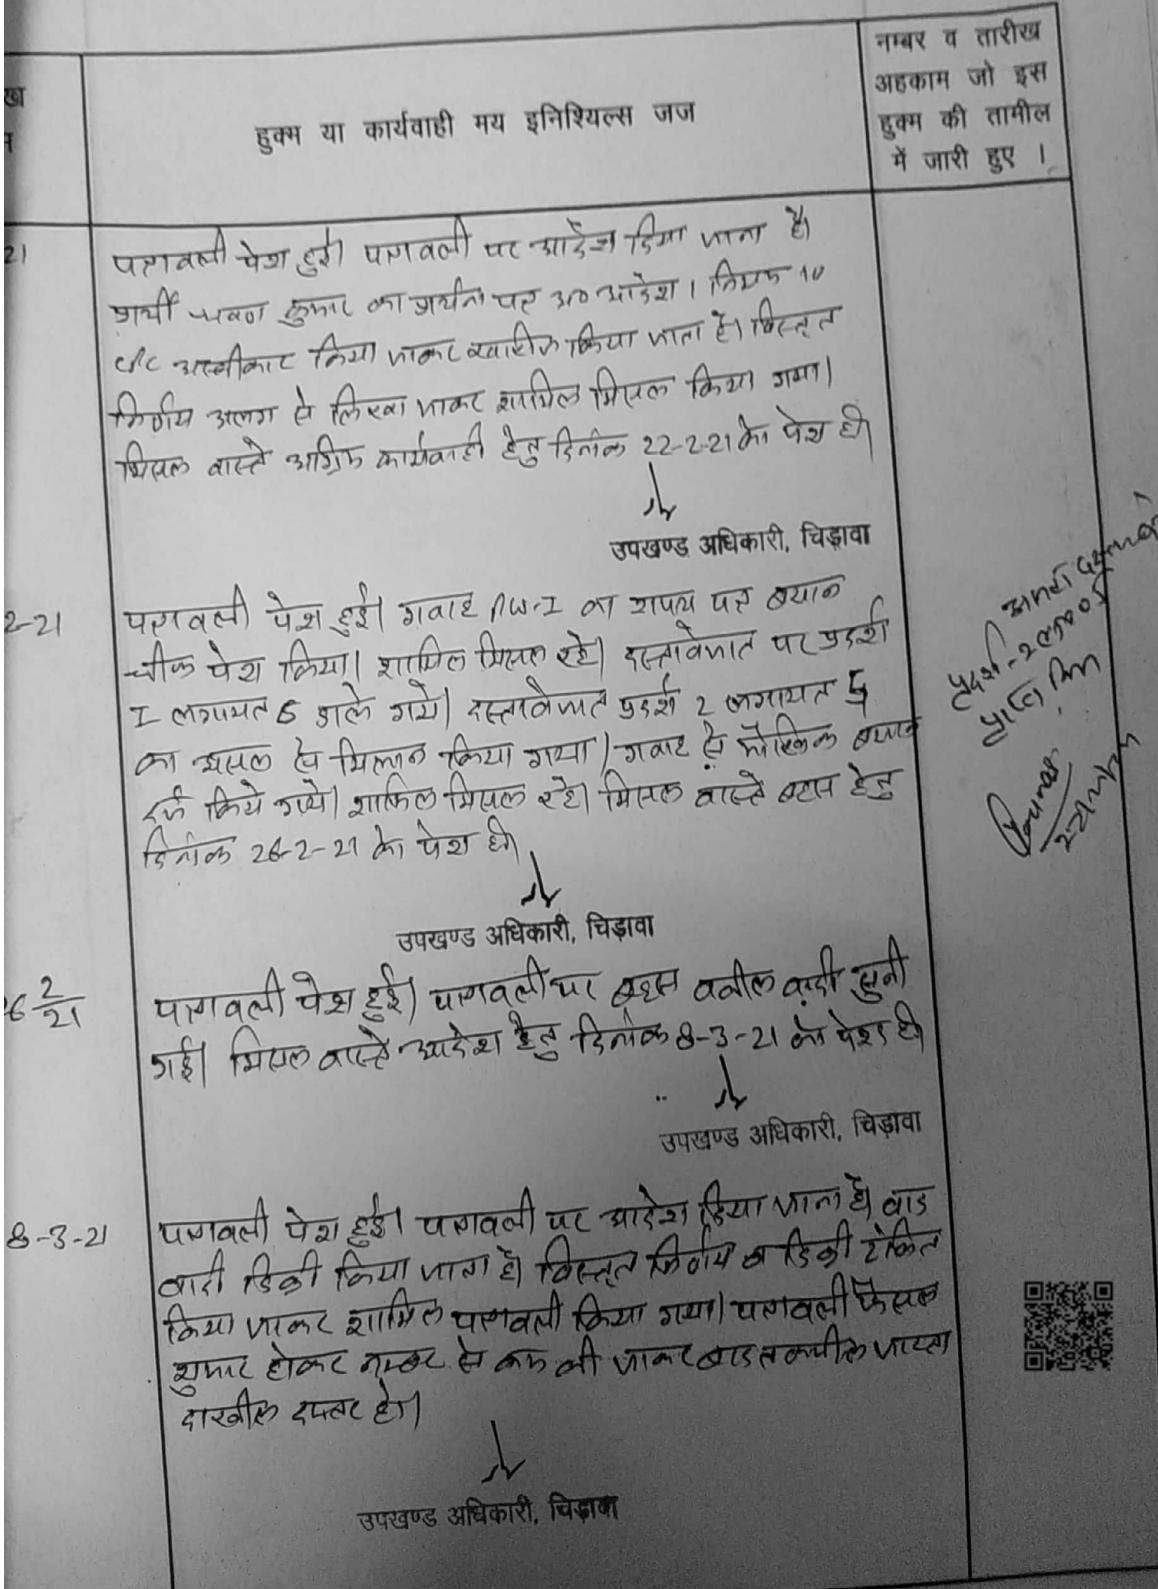 ख
हुक्म या कार्यवाही मय इनिशियल्स जज
नम्बर व तारीख
अहकाम जो इस
हुक्म की तामील
में जारी हुए ।
21
पत्रावली पेश हुई। पत्रावली पर आदेश दिया जाता है।
प्रार्थी कुमार का प्रार्थना पत्र आदेश 1 नियम 10
CPC अस्वीकार किया जाकर खारीज किया जाता है। विस्तृत
निर्णय अलग से लिखा जाकर शामिल मिसल किया गया।
मिसल वास्ते अग्रिम कार्यवाही हेतु दिनांक 22-2-21 को पेश हो।
उपखण्ड अधिकारी, चिड़ावा
2-21
पत्रावली पेश हुई। गवाह PW-I का शपथ पत्र बयान
चीफ पेश किया। शामिल मिसल रहे। दस्तावेजात पर प्रदर्श
I लगायत 5 डाले गये। दस्तावेजात प्रदर्श 2 लगायत 5
का असल से मिलान किया गया। गवाह से मौखिक बयान
दर्ज किये गये। शामिल मिसल रहे। मिसल वास्ते बहस हेतु
दिनांक 26-2-21 को पेश हो।
उपखण्ड अधिकारी, चिड़ावा
प्रदर्श-2
6 2/21
पत्रावली पेश हुई। पत्रावली पर बहस वकील वादी सुनी
गई। मिसल वास्ते आदेश हेतु दिनांक 8-3-21 को पेश हो।
उपखण्ड अधिकारी, चिड़ावा
8-3-21
पत्रावली पेश हुई। पत्रावली पर आदेश दिया जाता है। वाद
वादी डिक्री किया जाता है। विस्तृत निर्णय व डिक्री टंकित
किया जाकर शामिल पत्रावली किया गया। पत्रावली फैसल
शुमार होकर नम्बर से कम की जाकर बाद तकमील जाब्ता
दाखील दफ्तर हो।
उपखण्ड अधिकारी, चिड़ावा